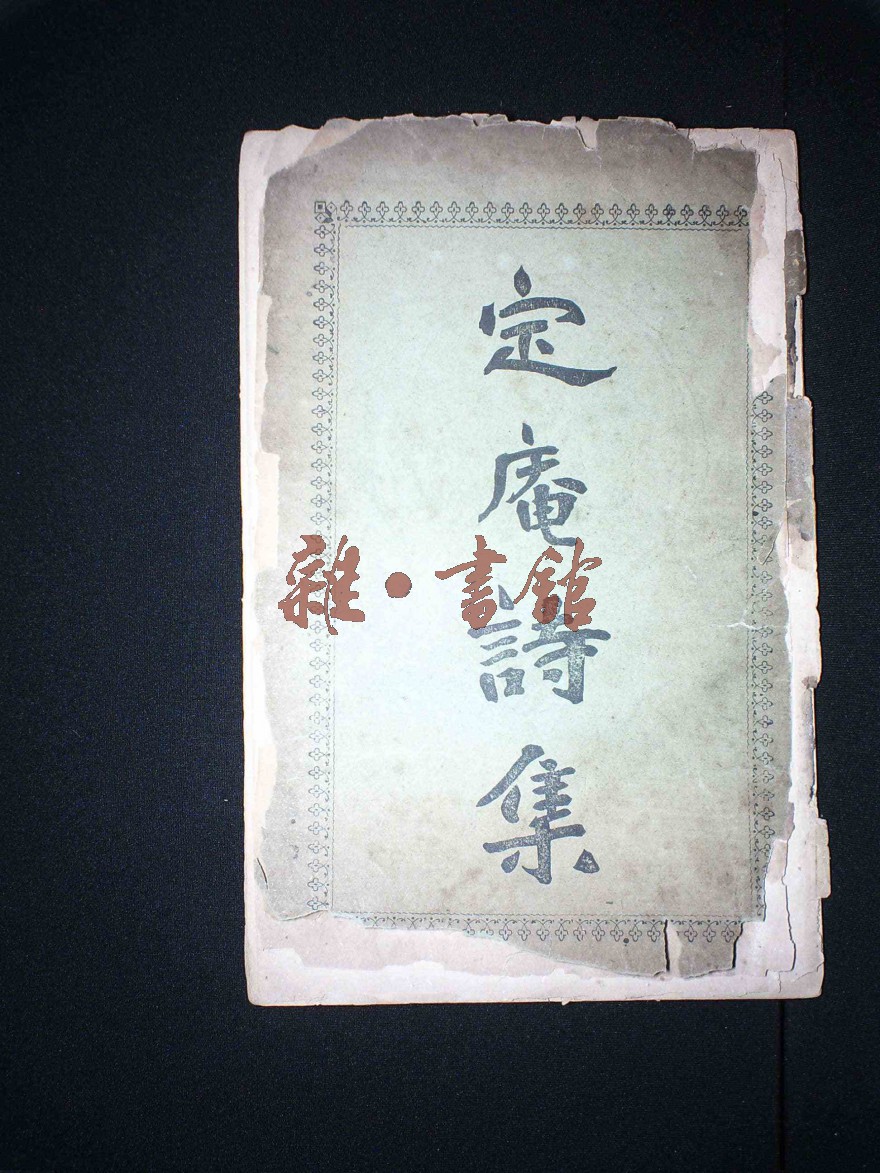 定庵詩集
雜·書館